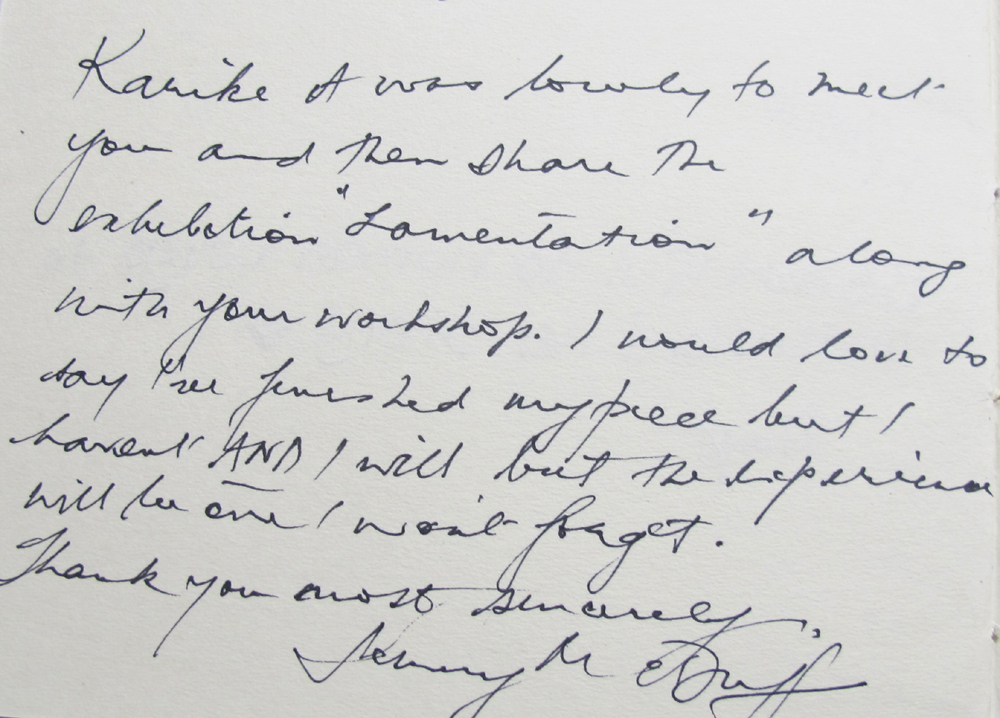 Karike it was lovely to meet
you and then share the
exhibition "Lamentation" along
with your workshop. I would love to
say I've finished my piece but I
haven't AND I will but the experience
will be one I won't forget.
Thank you most sincerely,
Jenny McDuff